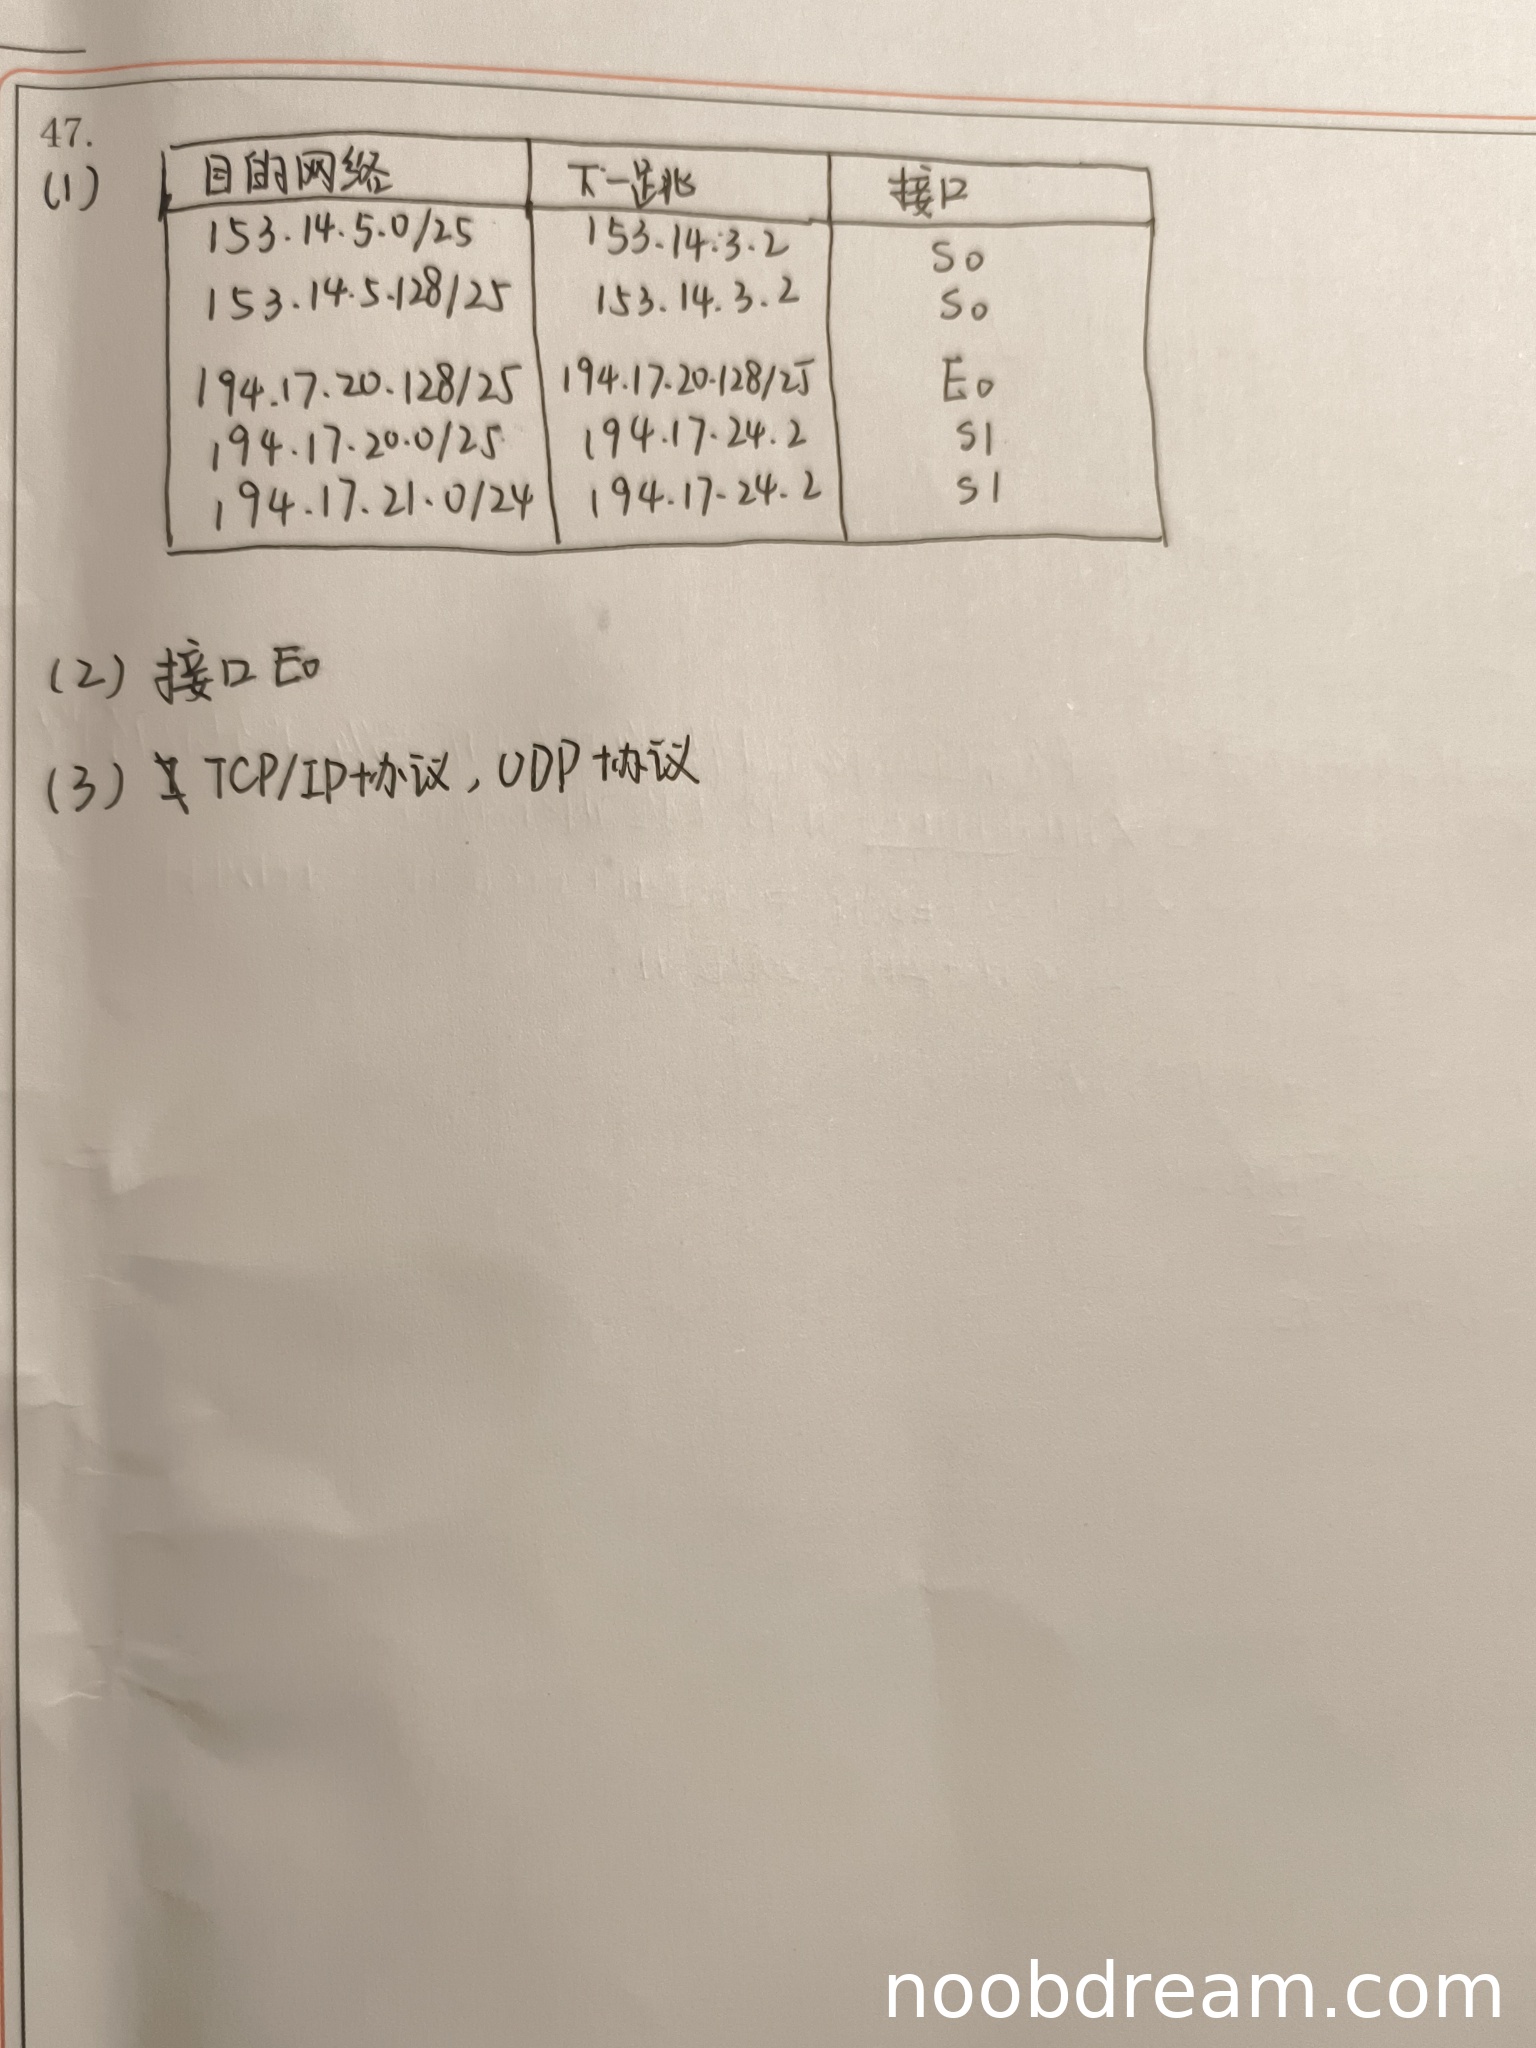 47.
(1)
目的网络 下一跳 接口
153.14.5.0/25 153.14.3.2 S0
153.14.5.128/25 153.14.3.2 S0
194.17.20.128/25 194.17.20.128/25 E0
194.17.20.0/25 194.17.24.2 S1
194.17.21.0/24 194.17.24.2 S1
(2) 接口 E0
(3) TCP/IP协议, UDP协议
noobdream.com